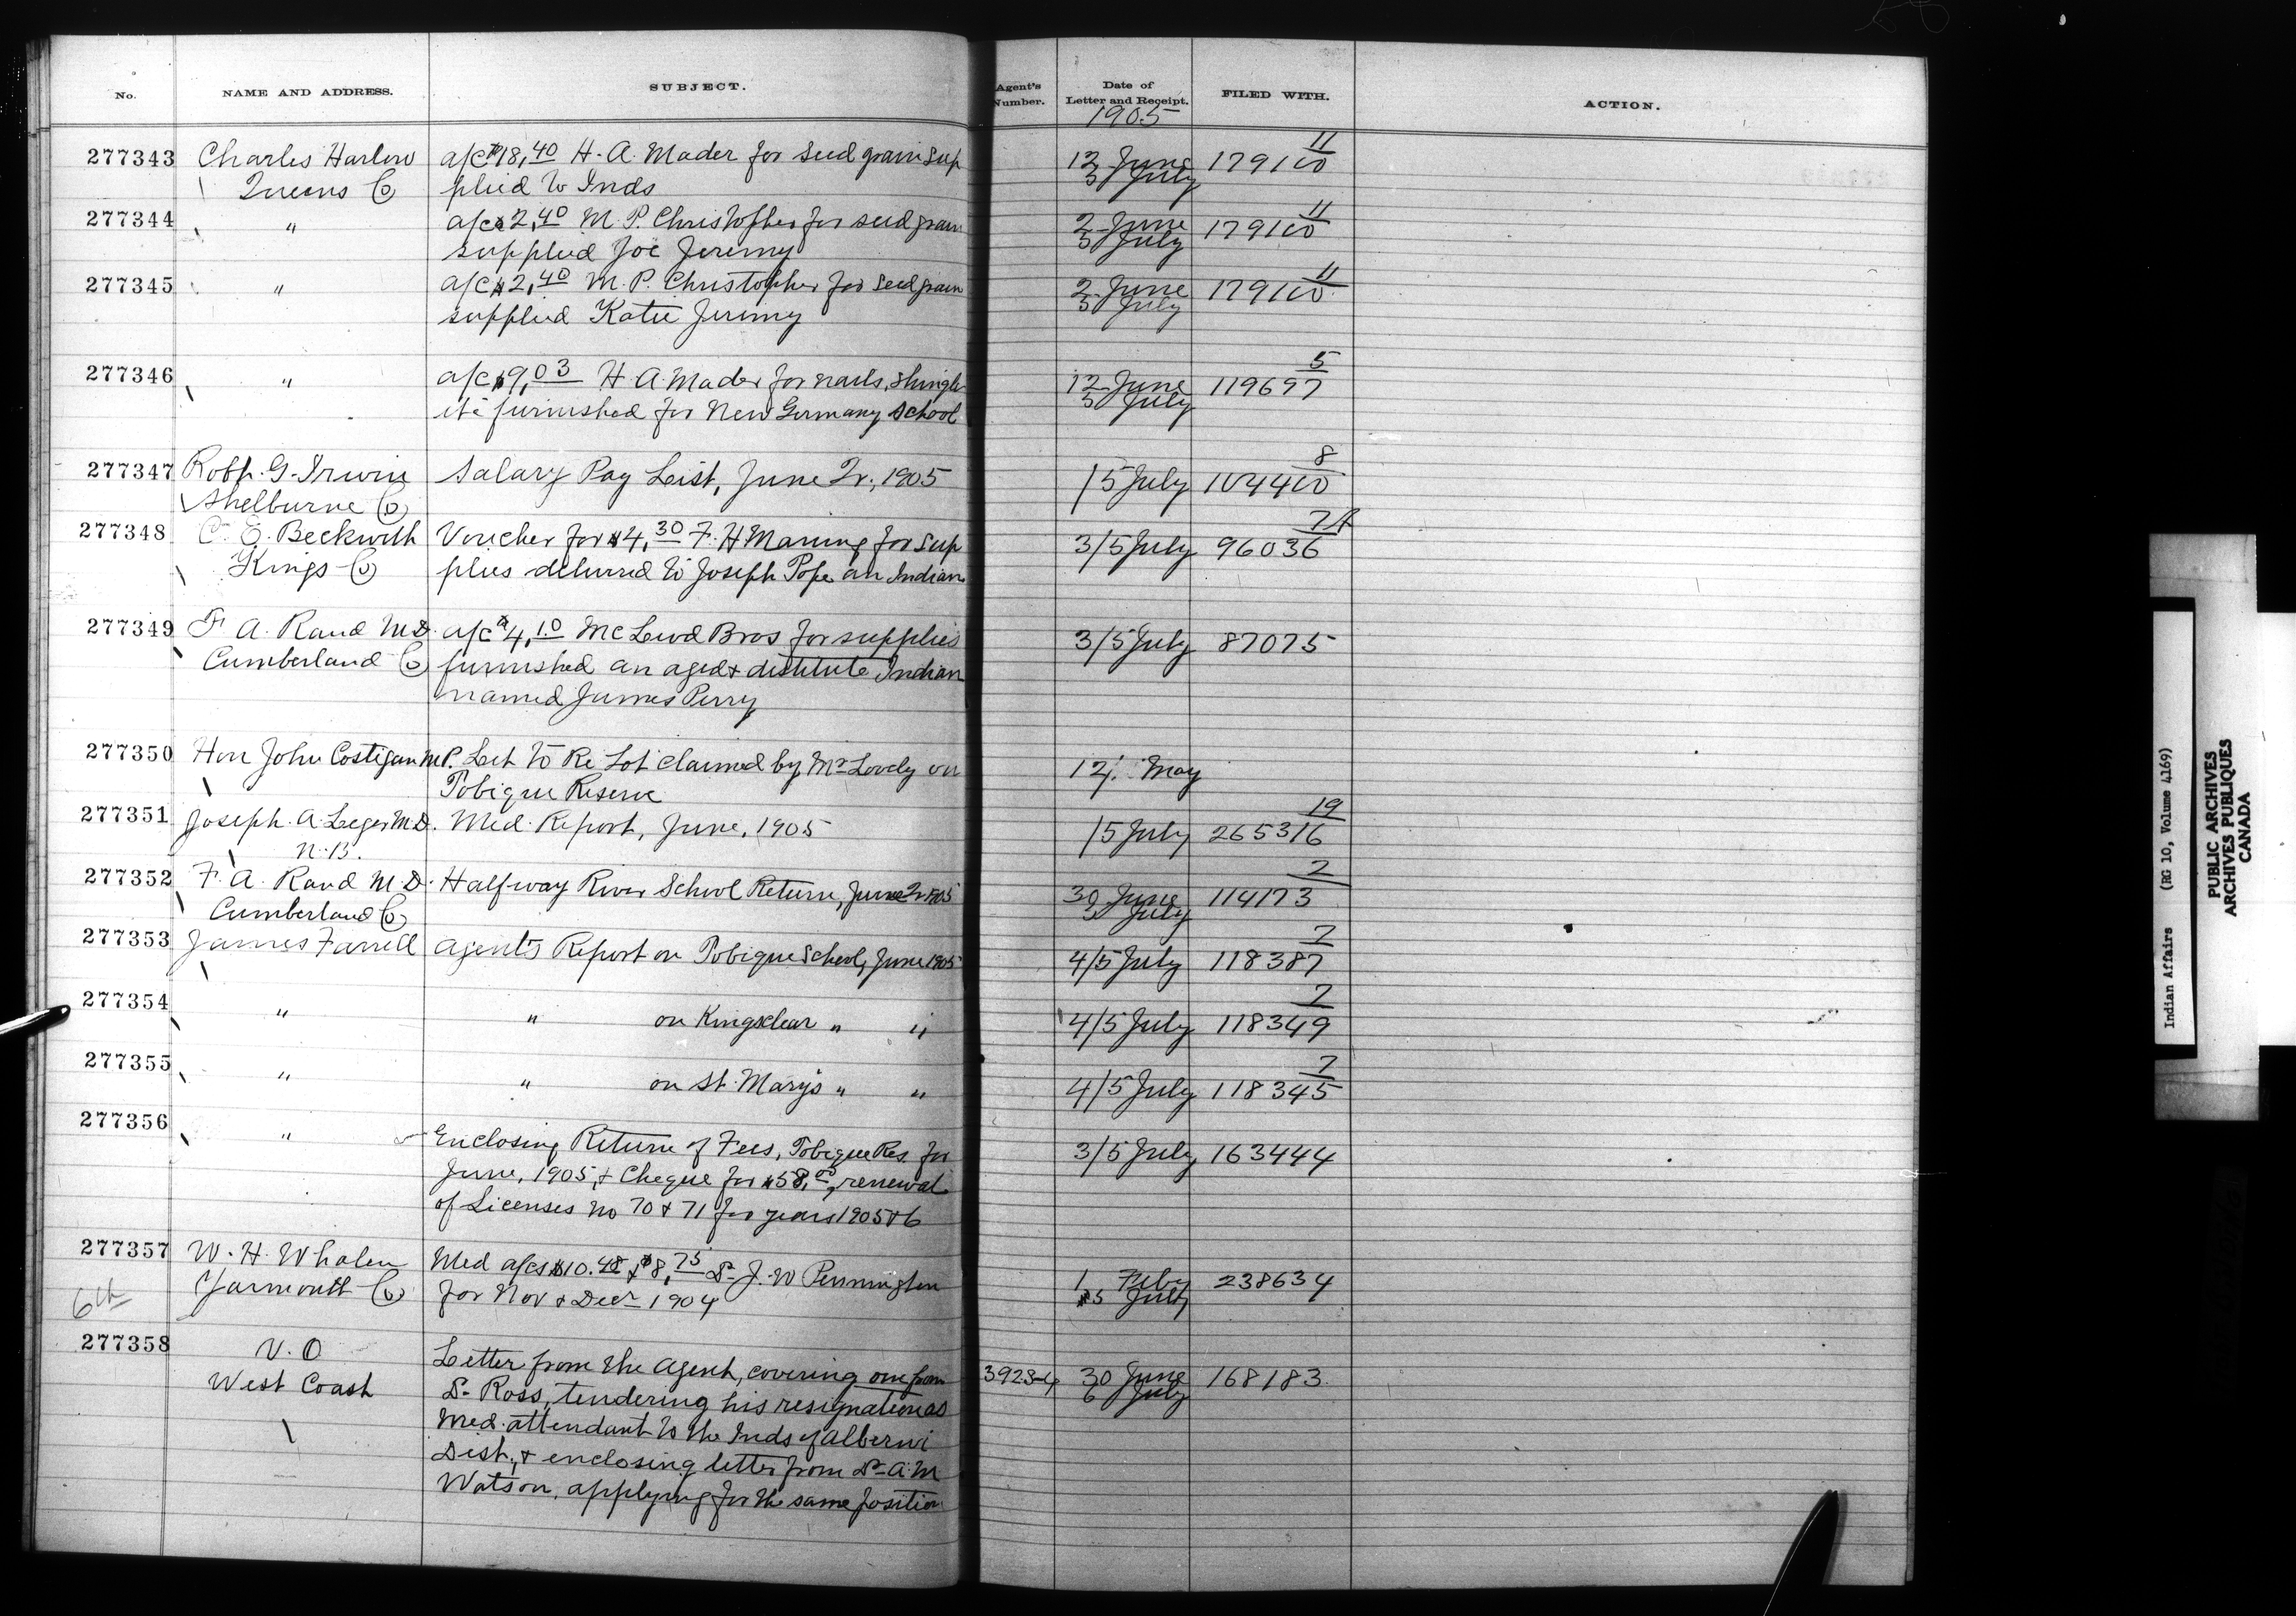 No. NAME AND ADDRESS. SUBJECT. Agent's Number. Date of Letter and Receipt. FILED WITH. ACTION.
1905
277343 Charles Harlow a/c $18,40 H. A. Mader for seed grain sup 12 June 179100 11
Queens Co plied to Inds 5 July
277344 " a/c $2,40 M. P. Christopher for seed grain 2 June 179100 11
supplied Joe Jeremy 5 July
277345 " a/c $2,40 M. P. Christopher for seed grain 2 June 179100 11
supplied Katie Jeremy 5 July
277346 " a/c $9,03 H. A. Mader for nails, shingle 12 June 119697 5
etc furnished for New Germany School 5 July
277347 Robt. G. Irwin Salary Pay List, June Qr., 1905 /5 July 104400 8
Shelburne Co
277348 C. E. Beckwith Voucher for $4,30 F. H Maning for sup 3/5 July 96036 7A
Kings Co plies delivered to Joseph Pope an Indian
277349 F. A. Rand M.D. a/c $4,10 McLeod Bros for supplies 3/5 July 87075
Cumberland Co furnished an aged & destitute Indian
named James Perry
277350 Hon John Costigan M.P. Let to Re Lot claimed by Mr Lovely on 12/ May
Tobique Reserve
277351 Joseph. A. Leger M.D. Med. Report, June, 1905 /5 July 265316 19
N.B.
277352 F. A. Rand M.D. Halfway River School Return, June Qr 1905 30 June 114173 2
Cumberland Co 5 July
277353 James Farrell Agent's Report on Tobique School, June 1905 4/5 July 118387 7
277354 " " on Kingsclear " " 4/5 July 118349 7
277355 " " on St. Mary's " " 4/5 July 118345 7
277356 " Enclosing Return of Fees, Tobique Res. for 3/5 July 163444
June, 1905, & Cheque for $58,00, renewal
of Licenses no 70 & 71 for years 1905 & 6
277357 W. H. Whalen Med a/cs $10.48 & $8,75 Dr J. W Pennington 1 July 238634
Yarmouth Co for Nov & Decr 1904 5 July
6th
277358 V. O Letter from the Agent, covering one from 3923-4 30 June 168183
West Coast Dr Ross, tendering his resignation as 6 July
Med. attendant to the Inds of Alberni
Dist., & enclosing letter from Dr A. M
Watson, applying for the same position
Indian Affairs (RG 10, Volume 4169)
PUBLIC ARCHIVES
ARCHIVES PUBLIQUES
CANADA